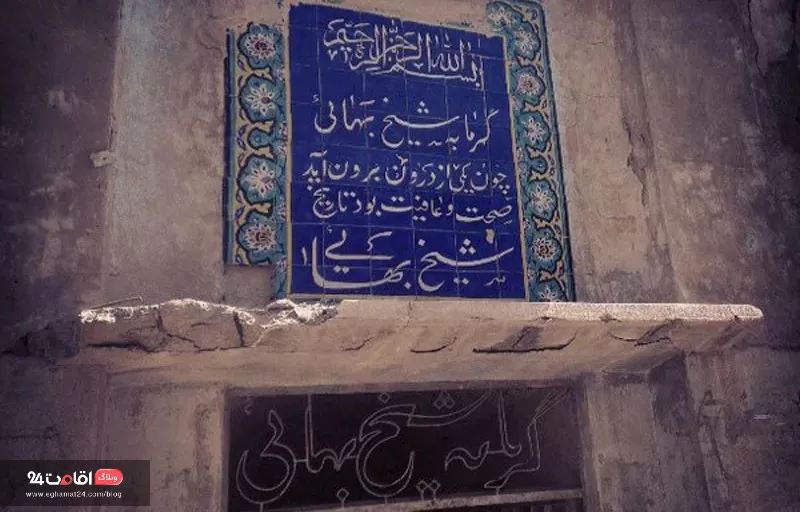 بسم الله الرحمن الرحیم
گرمابه شیخ بهائی
چون یکی از درون برون آید
صحت و عافیت بود تاریخ
شیخ بهایی
گرمابه شیخ بهایی
وبلاگ اقامت 24
www.eghamat24.com/blog